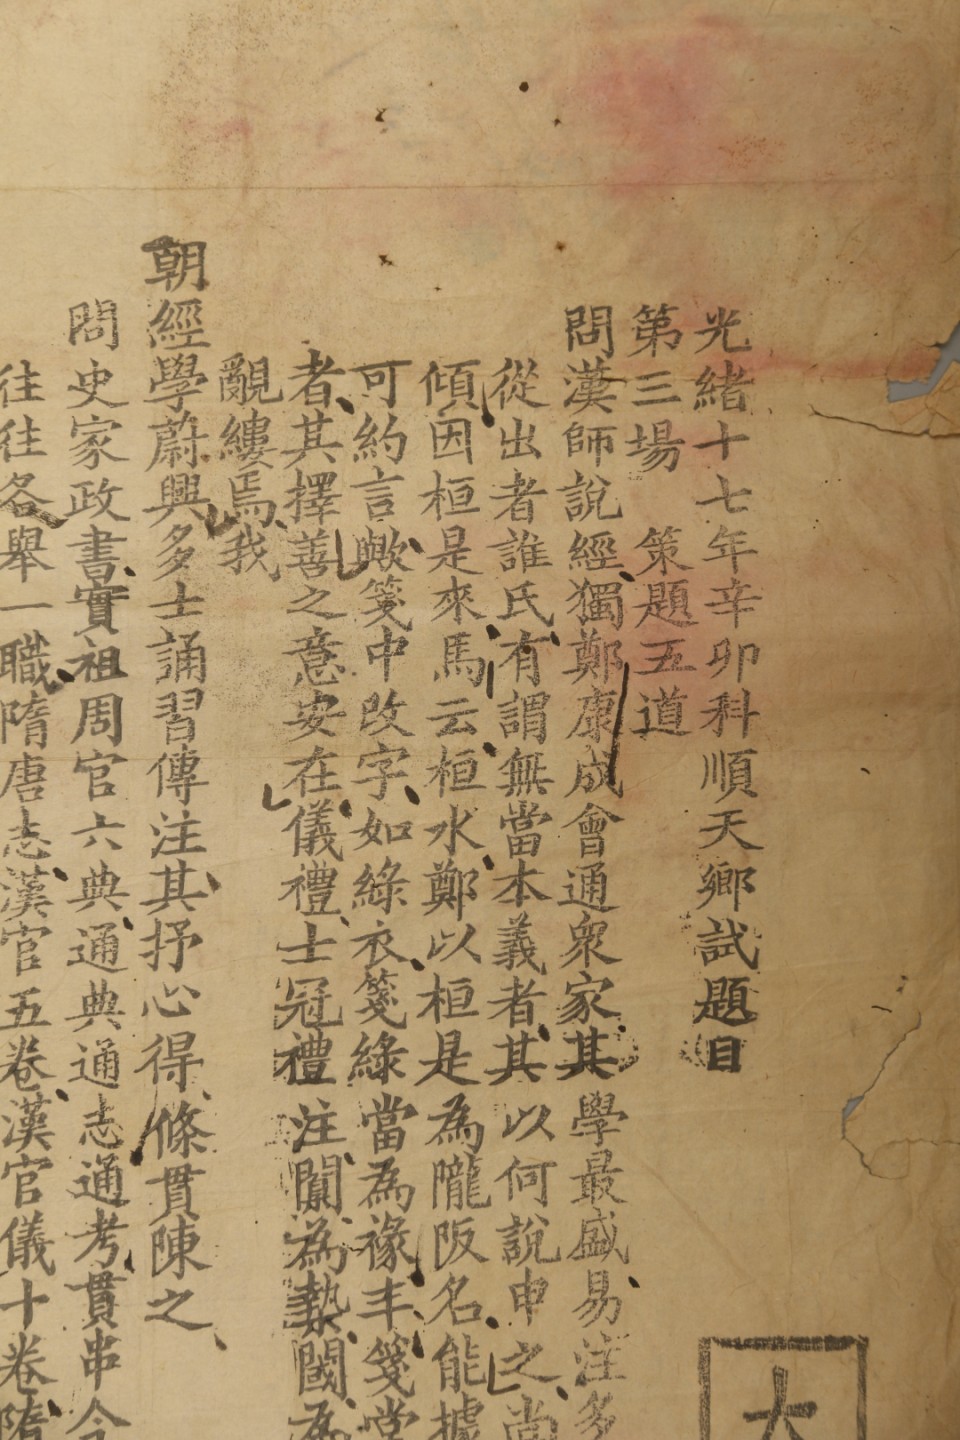 光緒十七年辛卯科順天鄉試題目
大
第三場　策題五道
問漢師說經獨鄭康成會通衆家其學最盛易注多
從出者誰氏有謂無當本義者其以何說申之尚
傾因桓是來馬云桓水鄭以桓是為隴阪名能據
可約言歟箋中改字如綠衣箋綠當為褖丰箋堂
者其擇善之意安在儀禮士冠禮注闑為槷閾為
覼縷焉我
朝經學蔚興多士誦習傳注其抒心得條貫陳之
問史家政書實祖周官六典通典通志通考貫串今
往往各舉一職隋唐志漢官五卷漢官儀十卷隋